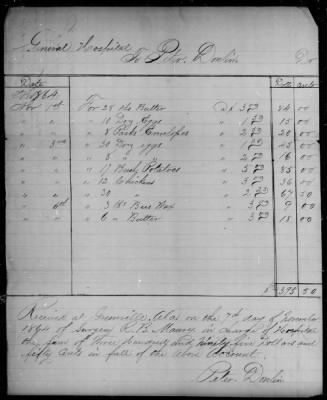 General Hospital
To Peter Donlin Dr
Date Doll cents
1864
Nov 1st For 28 lbs Butter @ 3.00 84 00
" " " 10 Doz Eggs " 1.50 15 00
" " " 8 Packs Envelopes " 2.50 20 00
" 3rd " 30 Doz eggs " 1.50 45 00
" " " 8 " " 2.00 16 00
" " " 17 Bush Potatoes " 5.00 85 00
" " " 12 Chickens " 3.00 36 00
" " " 30 " " 2.25 67 50
" 6th " 3 lbs Bees Wax " 3.00 9 00
" " " 6 " Butter " 3.00 18 00
$ 395 50
Received at Greenville, Alas on the 7th day of November
1864 of Surgeon R. B. Maury in charge of Hospital
the sum of Three hundred and Ninety five Dollars and
fifty Cents in full of the above account.
Peter Donlin